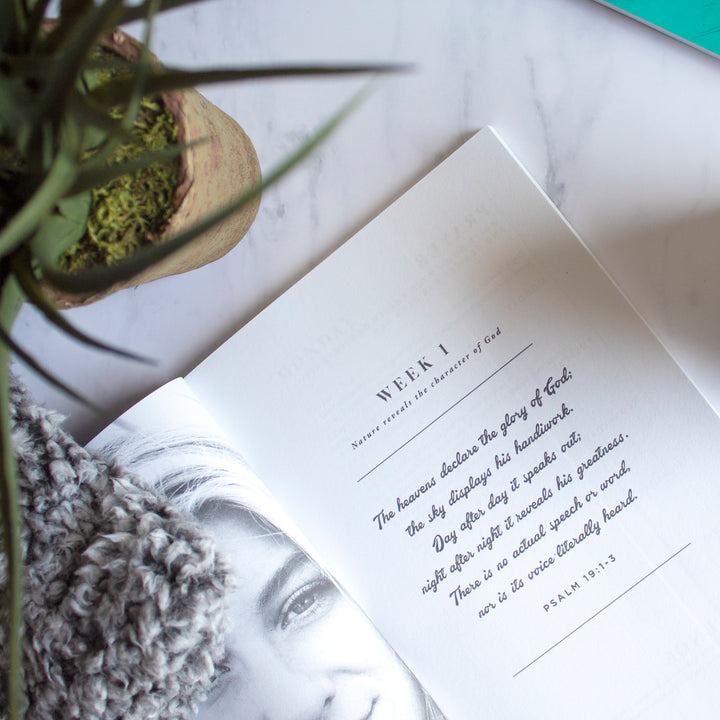 WEEK 1
Nature reveals the character of God
The heavens declare the glory of God;
the sky displays his handiwork.
Day after day it speaks out;
night after night it reveals his greatness.
There is no actual speech or word,
nor is its voice literally heard.
PSALM 19:1-3